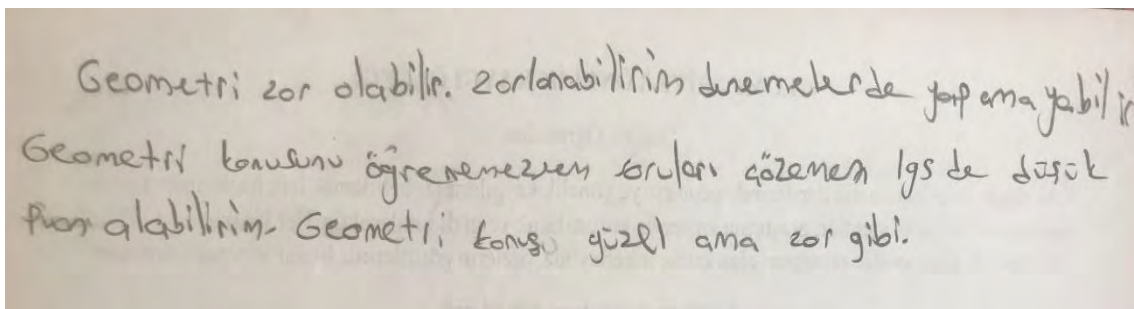 Geometri zor olabilir. Zorlanabilirim denemelerde yapamayabilir
Geometri konusunu öğrenemezsem soruları çözemem lgs de düşük
Puan alabilirim. Geometri konusu güzel ama zor gibi.